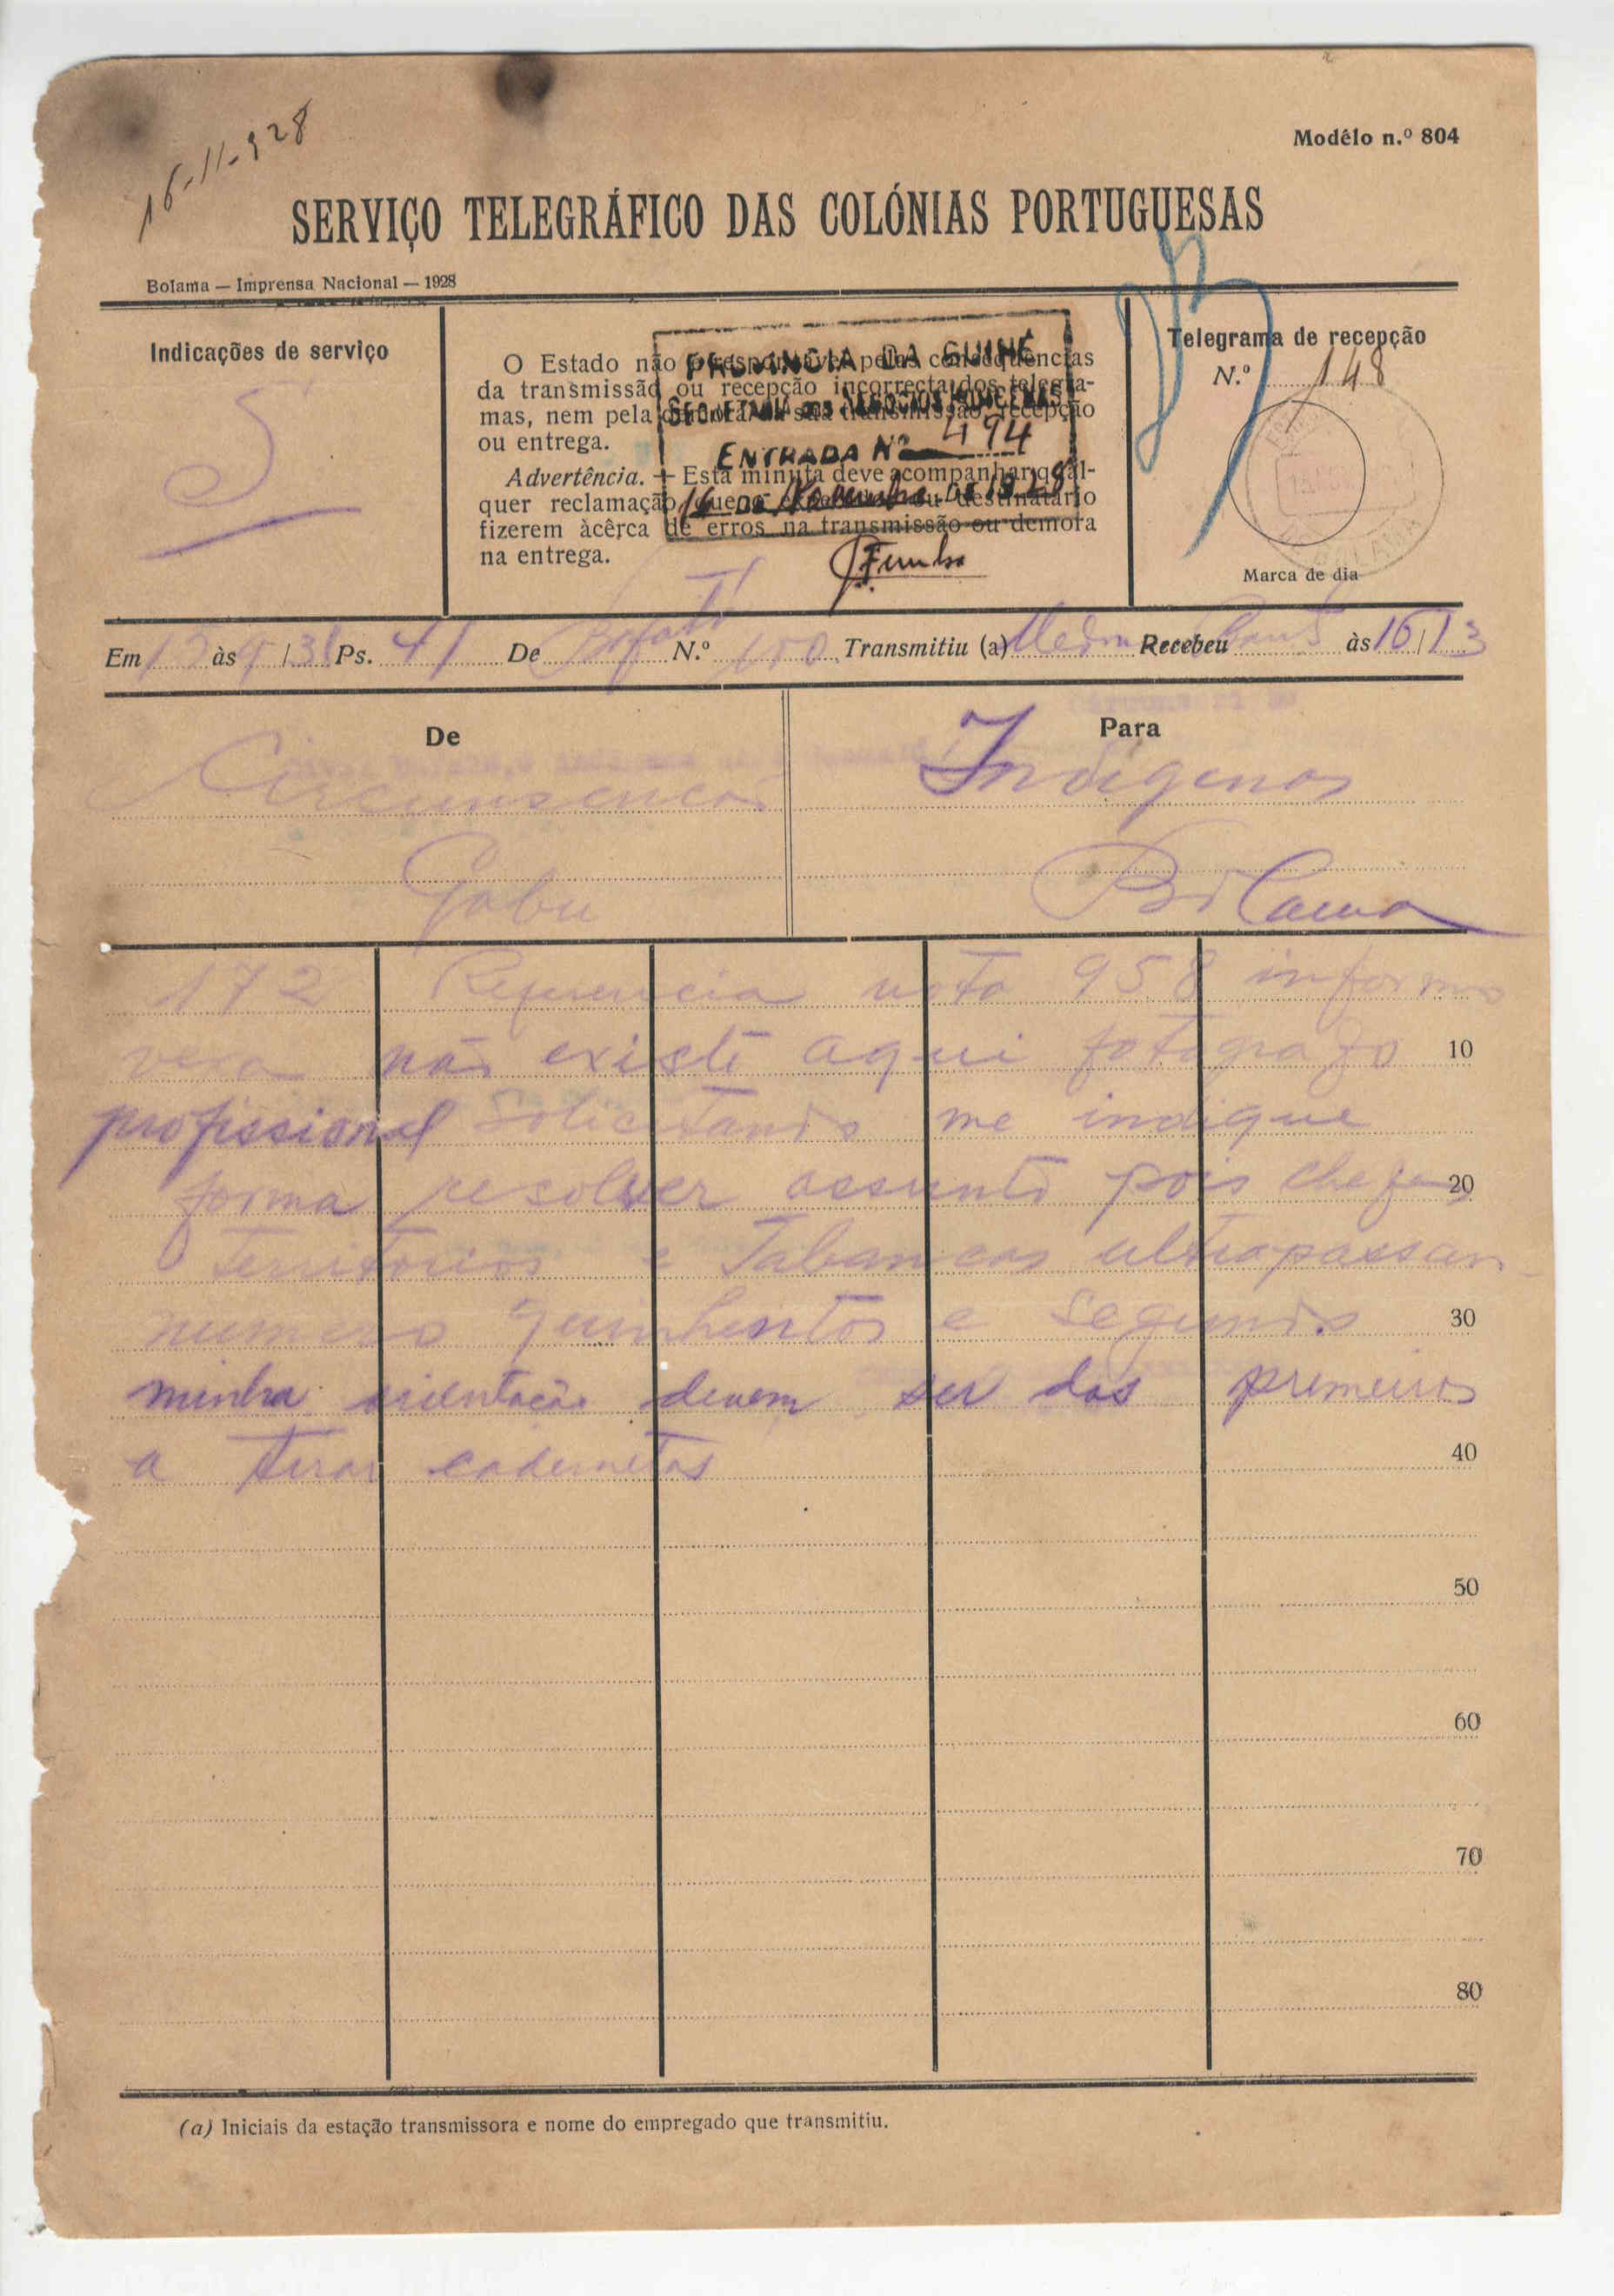 16-11-928
Modêlo n.º 804
SERVIÇO TELEGRÁFICO DAS COLÓNIAS PORTUGUESAS
Bolama — Imprensa Nacional — 1928
Indicações de serviço
S
O Estado não é responsável pelas consequências
da transmissão ou recepção incorrecta dos telegra-
mas, nem pela demora na sua transmissão, recepção
ou entrega.
Advertência. — Esta minuta deve acompanhar qual-
quer reclamação que o expedidor ou destinatário
fizerem àcêrca de erros na transmissão ou demora
na entrega.
PROVINCIA DA GUINÉ
SECRETARIA DOS NEGOCIOS INDIGENAS
ENTRADA Nº 494
16 DE Novembro DE 1928
Telegrama de recepção
N.º 148
BOLAMA
Marca de dia
Em 12 às 9/31 Ps. 41 De Bafatá N.º 150 Transmitiu (a) Recebeu às 16/13
De
Circunscricao
Gabu
Para
Indigenas
Bolama
172 Referencia nota 958 informo
vexa não existe aqui fotografo 10
profissional solicitando me indique
forma resolver assunto pois chefes 20
territorios e Tabancas ultrapassam
numero quinhentos e segundo 30
minha orientação devem ser dos premeiros
a tirar cadernetas 40
50
60
70
80
(a) Iniciais da estação transmissora e nome do empregado que transmitiu.